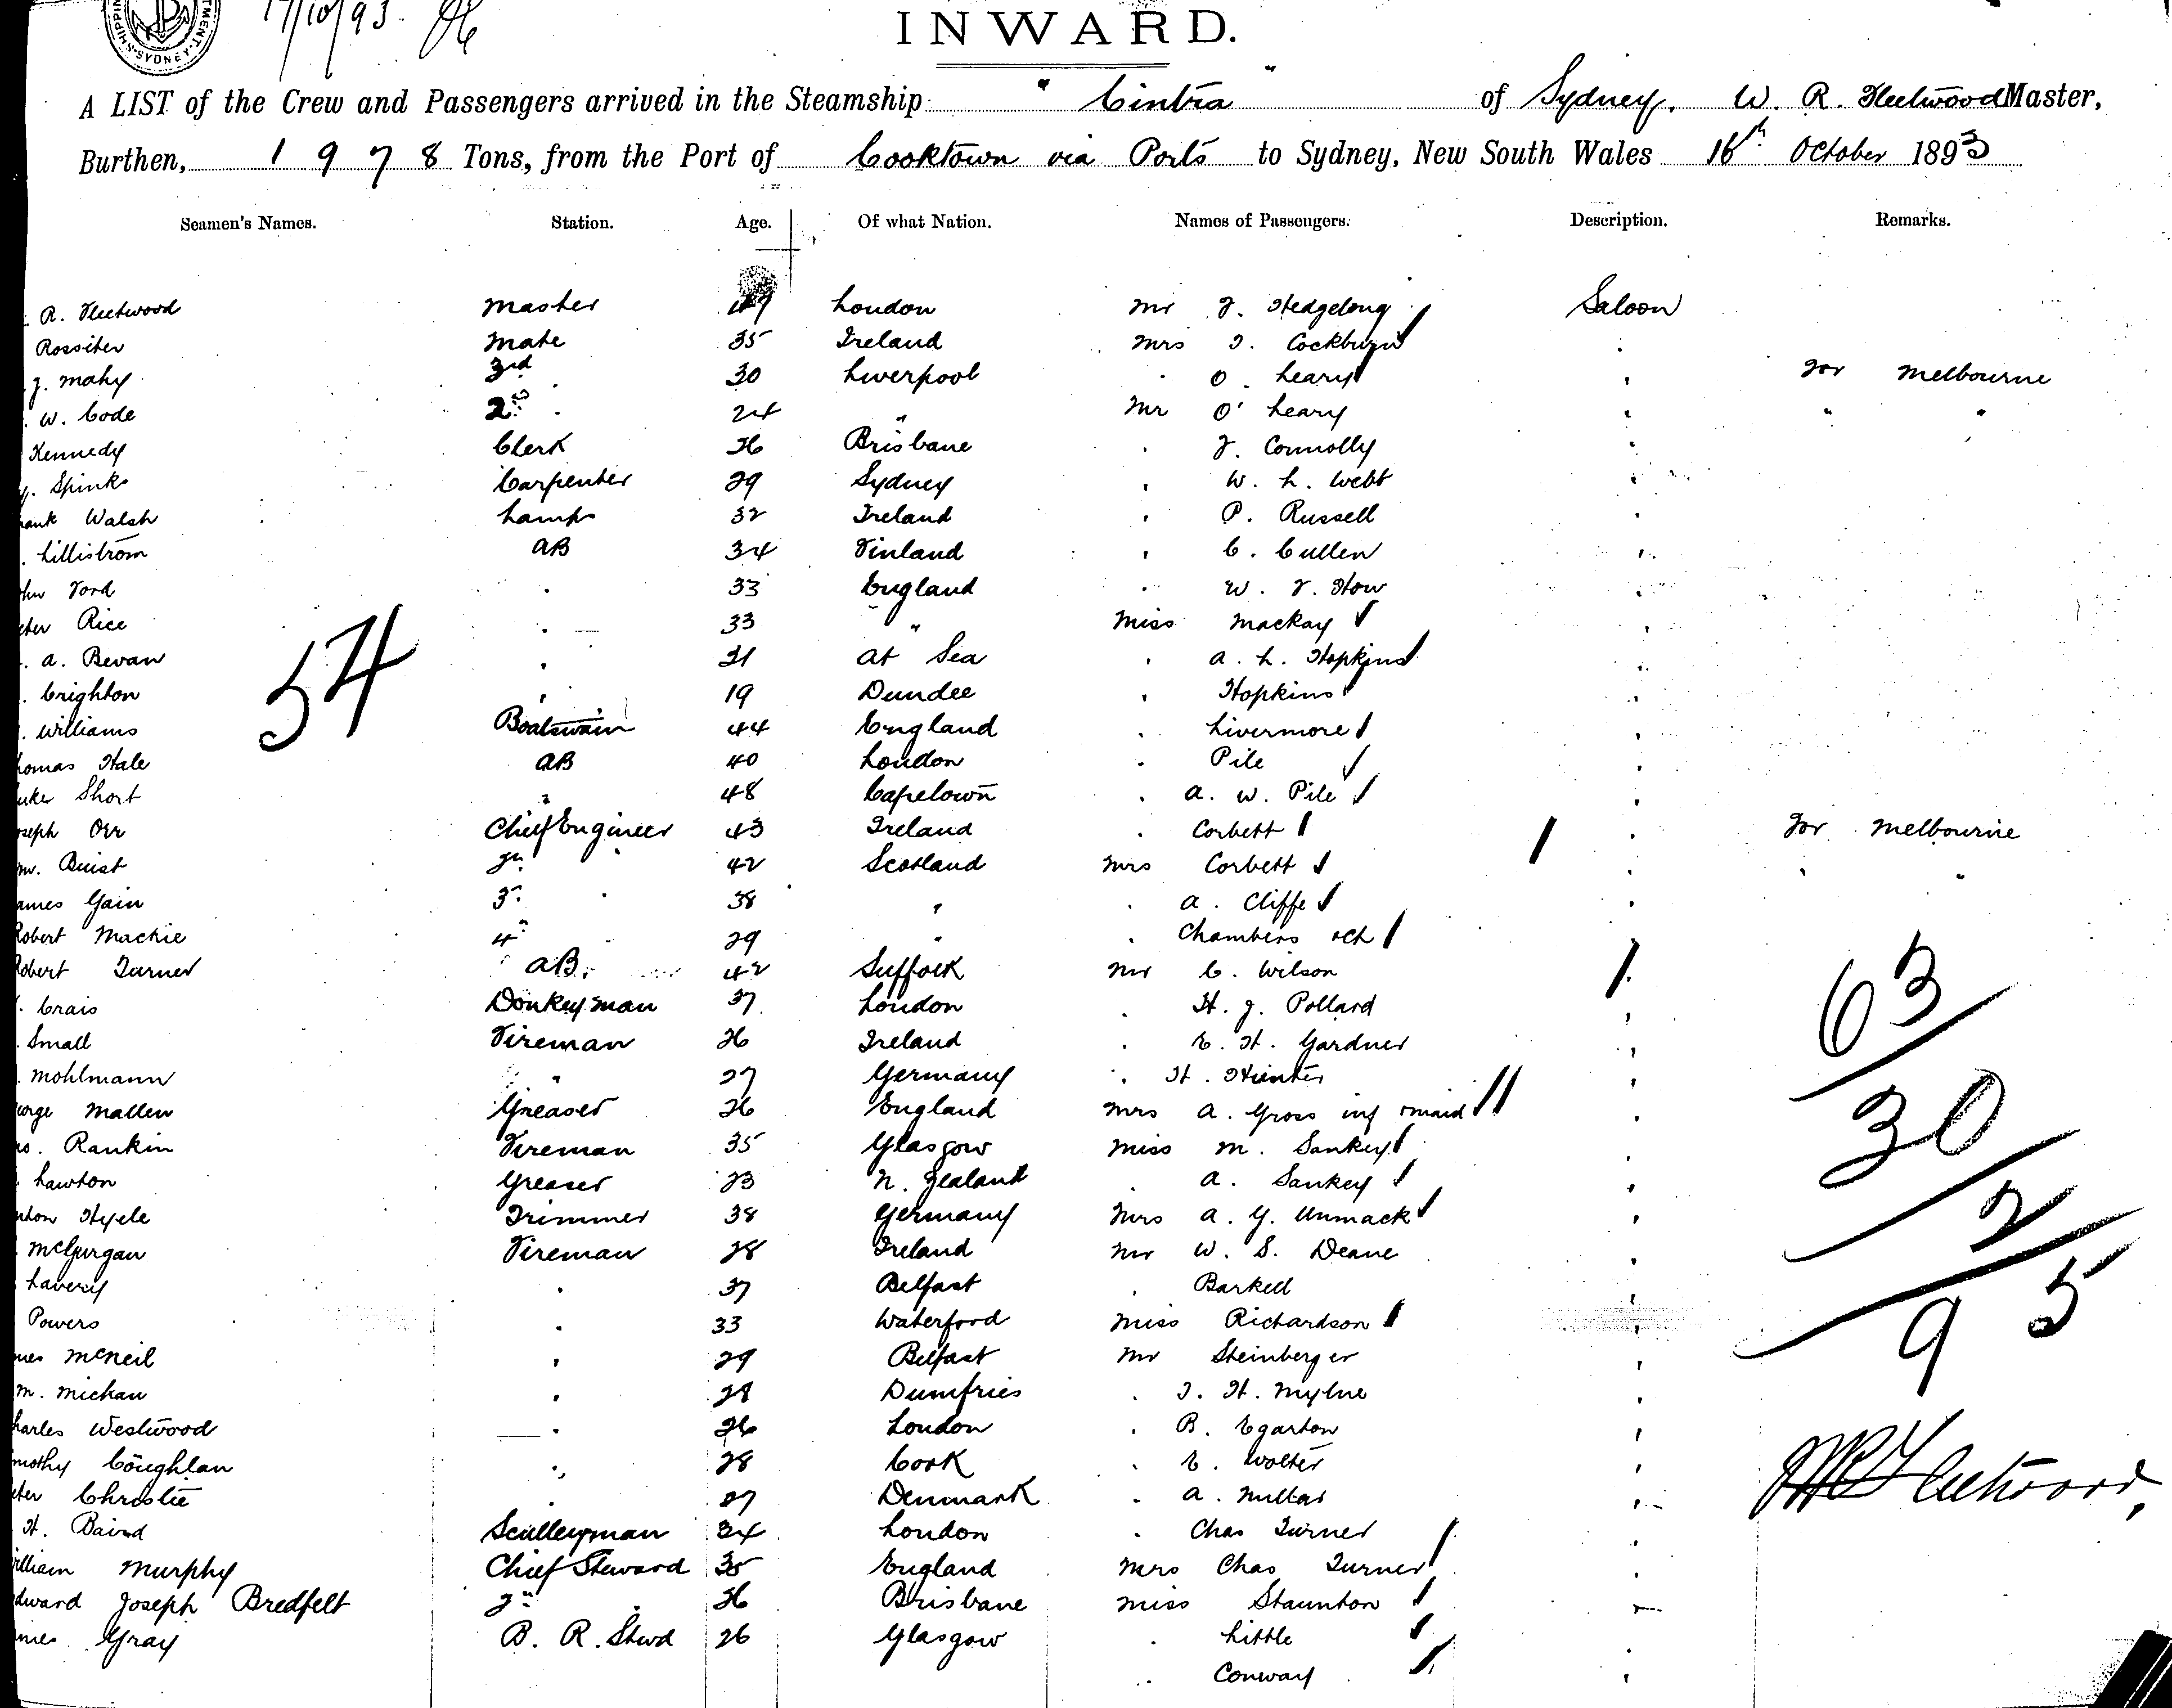 17/10/93.
SYDNEY
INWARD.
A LIST of the Crew and Passengers arrived in the Steamship "Cintra" of Sydney, W. R. Fleetwood Master,
Burthen, 1978 Tons, from the Port of Cooktown via Ports to Sydney, New South Wales 16th October 1893
Seamen's Names. Station. Age. Of what Nation. Names of Passengers. Description. Remarks.
R. Fleetwood Master 49 London Mr J. Hedgelong Saloon
Rossiter Mate 35 Ireland Mrs T. Cockburn
J. Mahy 3rd 30 Liverpool . O. Leary For Melbourne
W. Code 2nd . 24 " Mr O'Leary " "
Kennedy Clerk 26 Brisbane . J. Connolly
Spinks Carpenter 29 Sydney . W. L. Webb
ank Walsh Lamps 32 Ireland . P. Russell
Lillistrom AB 34 Finland . C. Cullen
hn Ford . 33 England . W. F. How
eter Rice . 33 " Miss Mackay
. A. Bevan . 21 At Sea . A. L. Hopkins
. Crighton . 19 Dundee . Hopkins
. Williams Boatswain 44 England . Livermore
homas Hale AB 40 London . Pile
uke Short . 48 Capetown . A. W. Pile
oseph Orr Chief Engineer 43 Ireland . Corbett For Melbourne
m. Buist 2n 42 Scotland Mrs Corbett . "
ames Gain 3 . 38 " . A. Cliffe
Robert Mackie 4 . 29 " . Chambers & ch
Robert Turner AB. 42 Suffolk Mr C. Wilson
. Crais Donkeyman 37 London . H. J. Pollard
. Small Fireman 26 Ireland . E. H. Gardner
. Mohlmann " 27 Germany . H. Hunter
eorge Mallen Greaser 26 England Mrs A. Gross inf & maid
o. Rankin Fireman 35 Glasgow Miss M. Sankey
. Lawton Greaser 23 N. Zealand . A. Sankey
nton Hyele Trimmer 38 Germany Mrs A. G. Unmack
. McGurgan Fireman 28 Ireland Mr W. S. Deane
Lavery . 37 Belfast . Barkell
Powers . 33 Waterford Miss Richardson
mes McNeil . 29 Belfast Mr Steinberger
m. Mickan . 28 Dumfries . T. H. Mylne
harles Westwood . 26 London . B. Egarton
mothy Coughlan . 28 Cork . E. Wolter
eter Christie . 27 Denmark . A. Millar
H. Baird Sculleryman 34 London . Chas Turner
illiam Murphy Chief Steward 35 England Mrs Chas Turner
dward Joseph Bredfelt 2n . 26 Brisbane Miss Staunton
mes Gray B. R. Stwd 26 Glasgow . Little
. Conway
54
63
30
2
95
WR Fleetwood